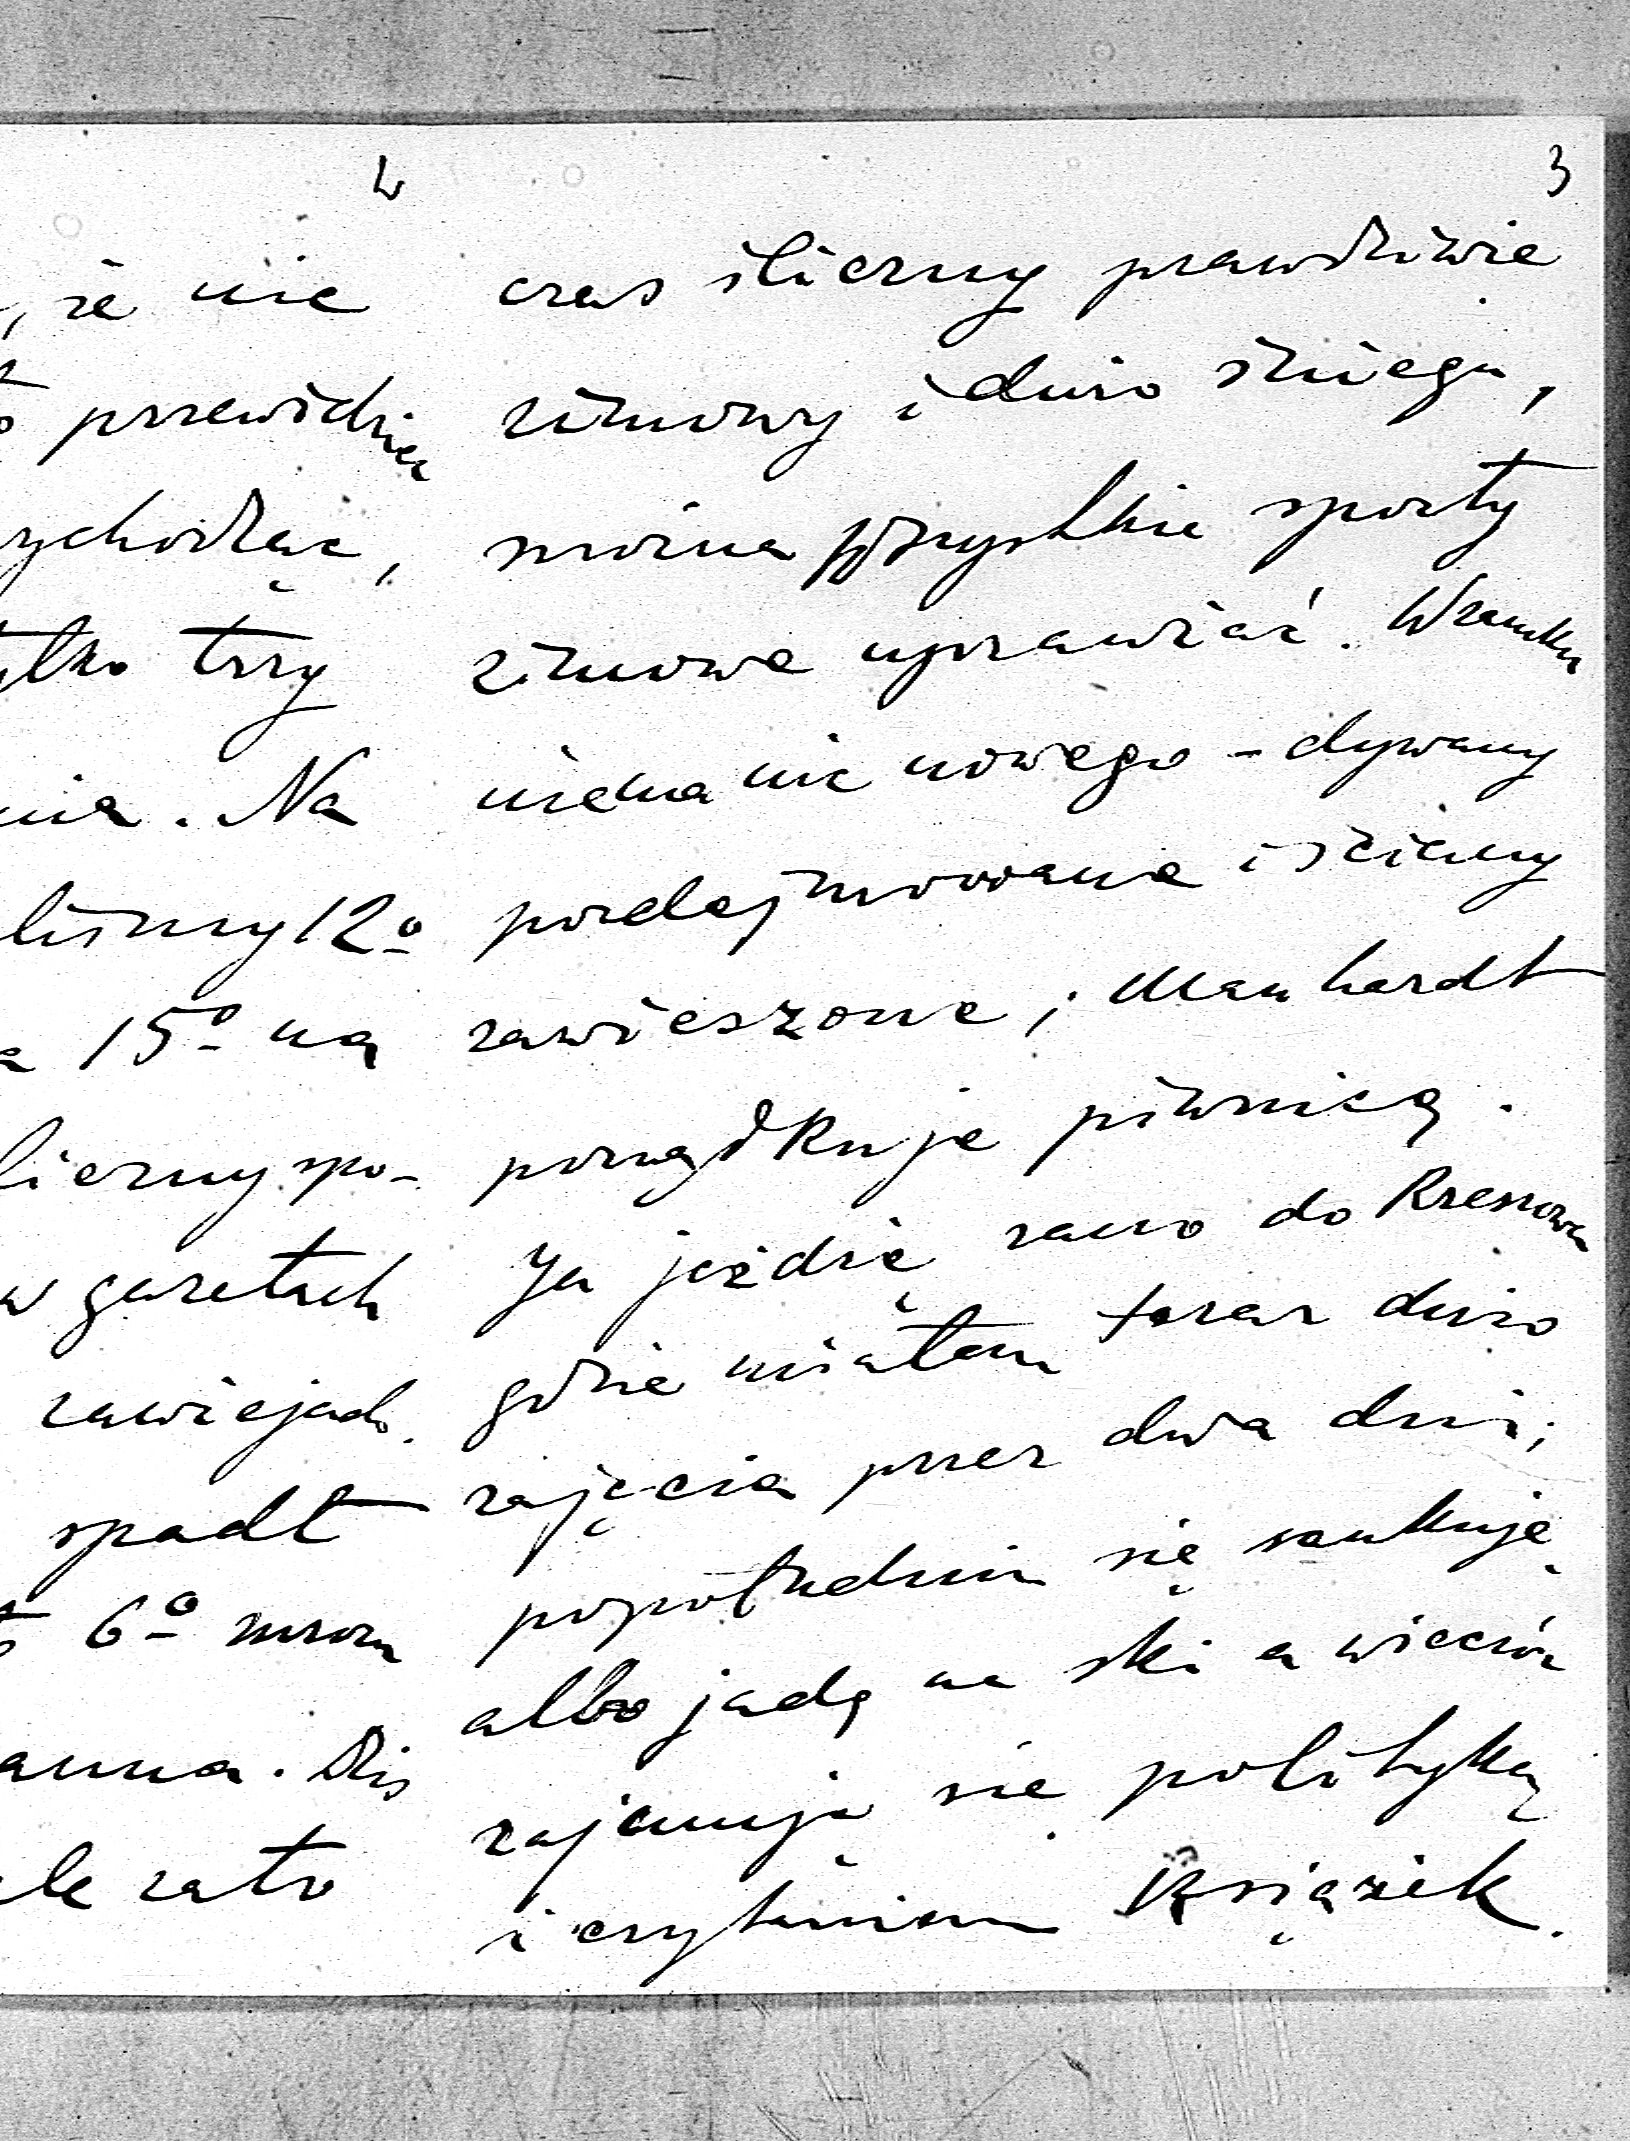 2
, że nie
przewidzieć
ychodząc,
ylko trzy
nia. Na
liśmy 12º
a 15º na
liczny spo-
w gazetach
zawieja do.
spadł
6º mrozu
anna. Dziś
ale zato
3
czas śliczny prawdziwie
zimowy i dużo śniegu,
można wszystkie sporty
zimowe uprawiać. W zamku
niema nic nowego - dywany
pozdejmowane i ściany
zawieszone; Manhardt
porządkuje piwnicą.
Ja jeżdżę rano do Rzeszowa
gdzie miałem teraz dużo
zajęcia przez dwa dni;
popołudniu się sankuję
albo jadę na ski a wieczór
zajmuję się polityką
i czytaniem książek.